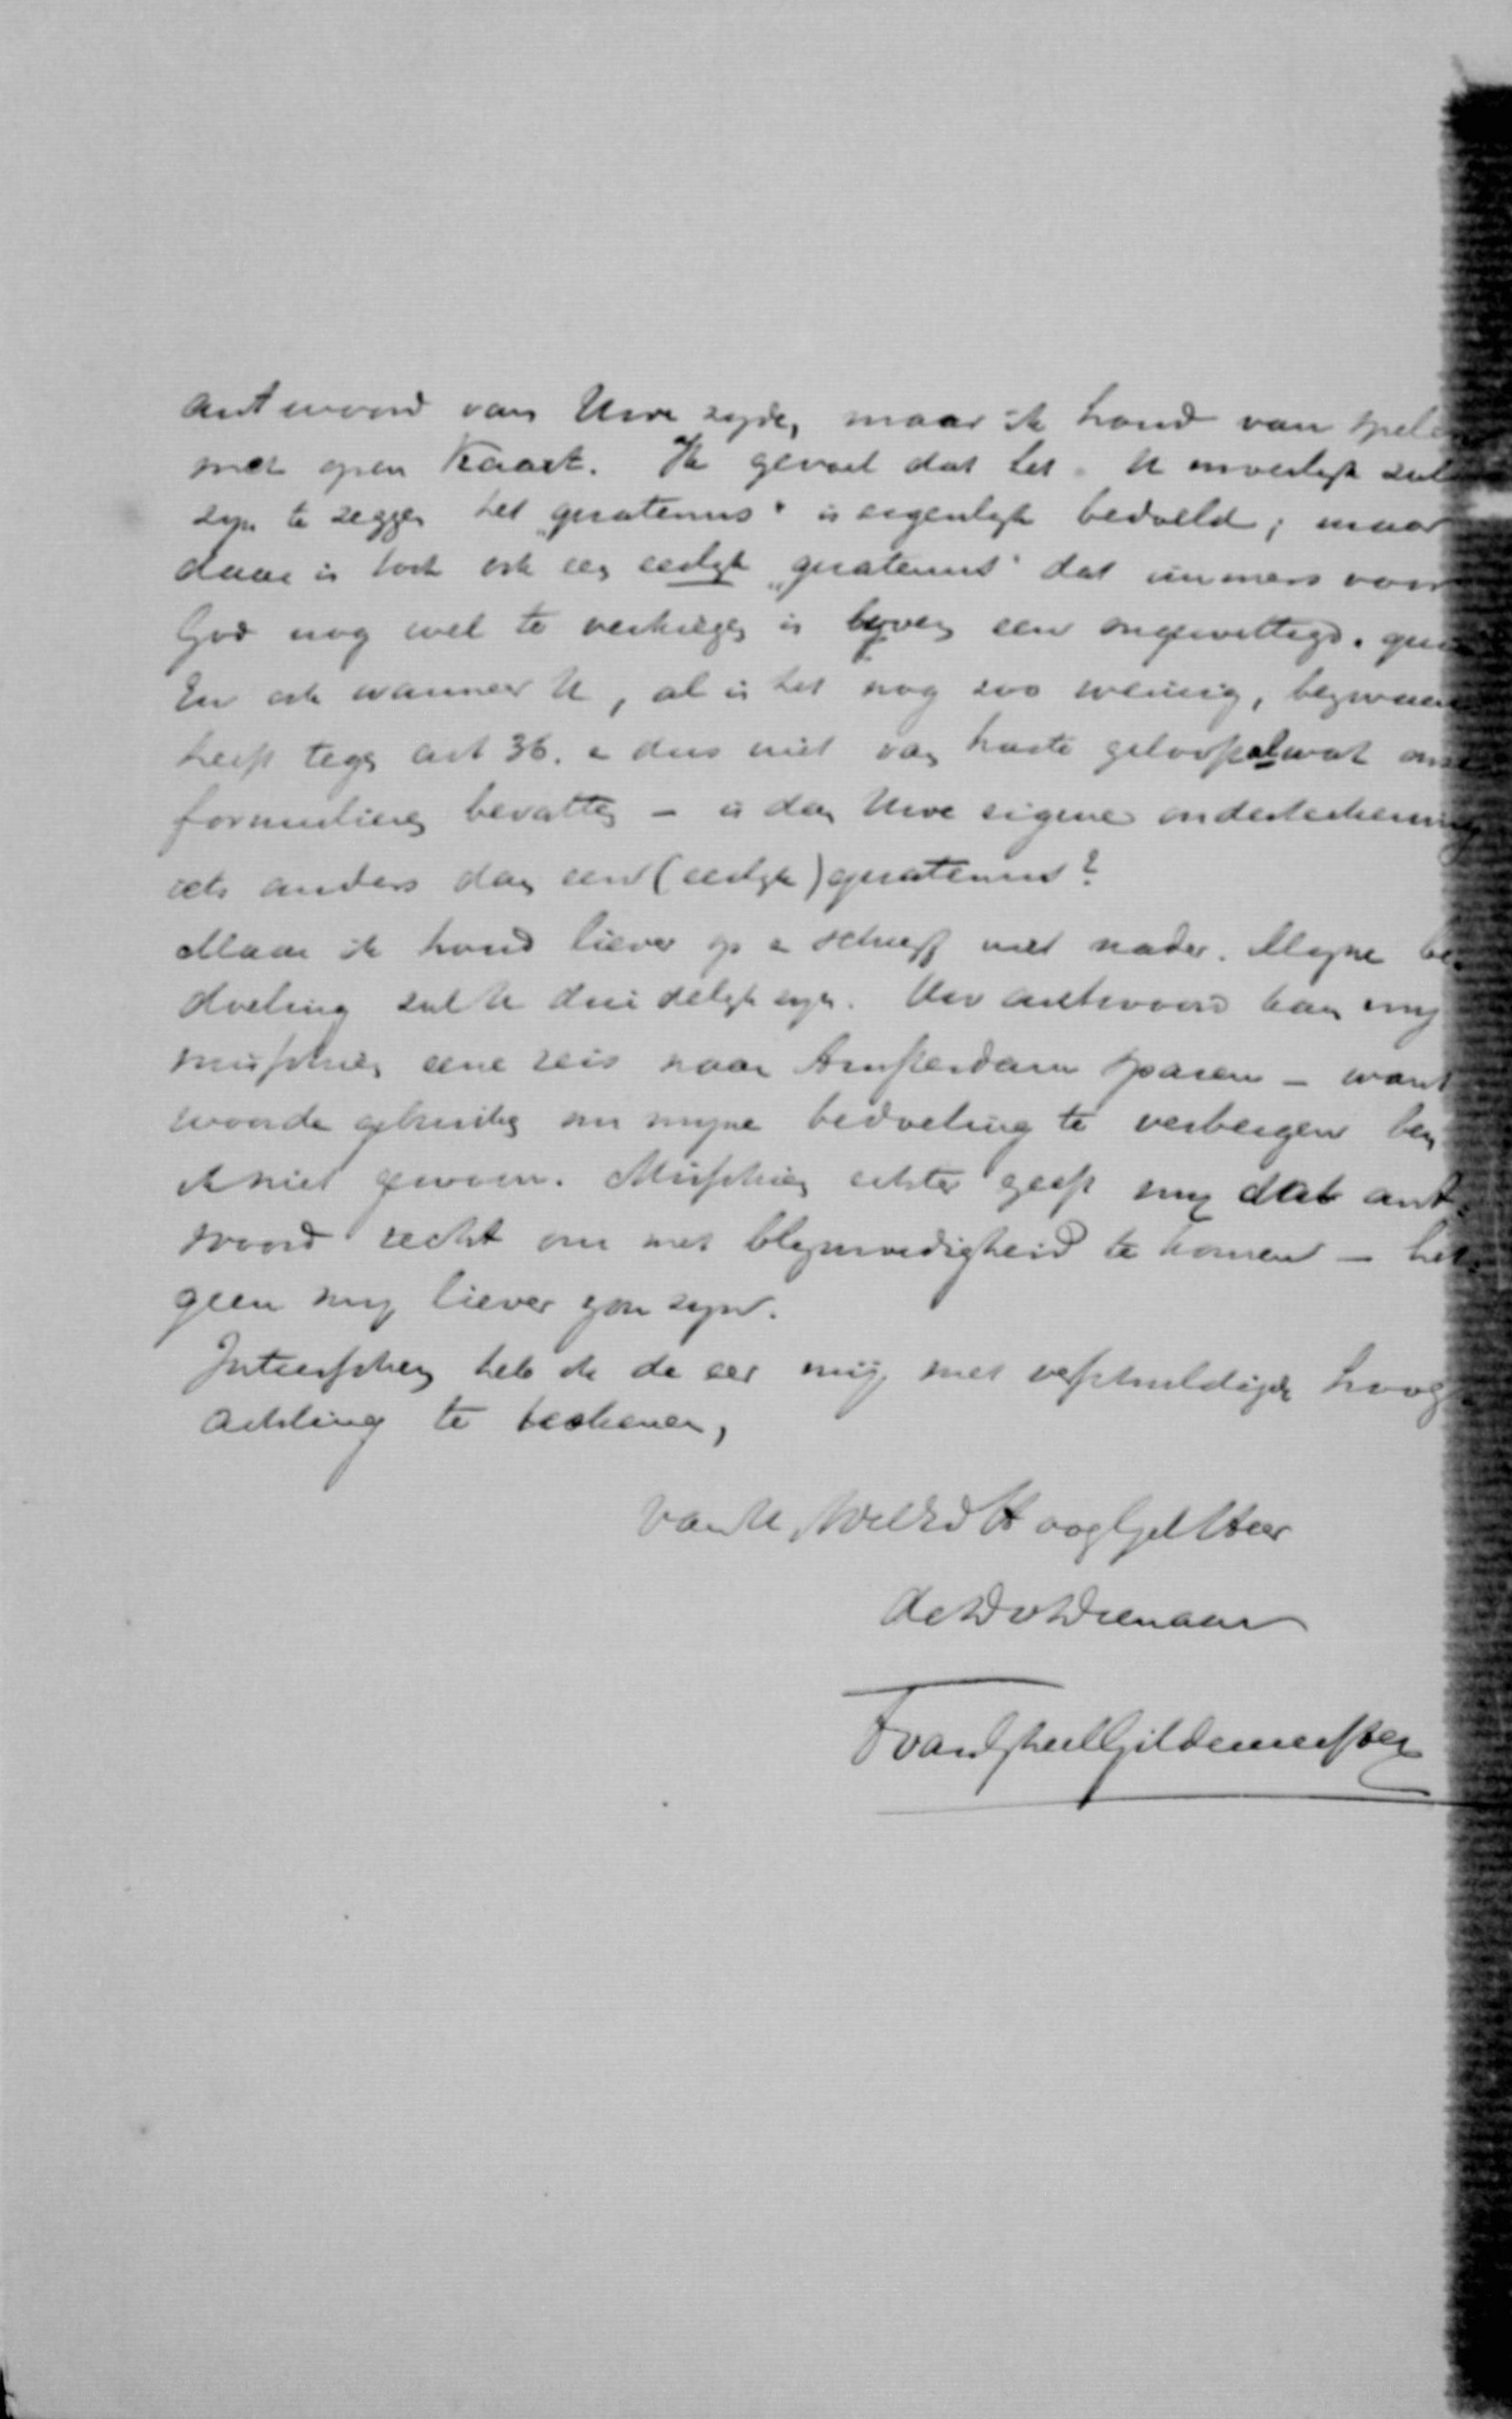 antwoord van Uwe zyde, maar ik houd van spelen
met open kaart. Ik gevoel dat het U moeilyk zal
zyn te zeggen het „quatenus" is eigenlyk bedoeld; maar
daar is toch ook een eerlyk „quatenus" dat immers voor
God nog wel te verkrygen is boven een ongewettigd. quia
En ook wanneer U, al is het nog zoo weinig, bezwaren
heeft tegen art 36. en dus niet van harte gelooft al wat onze
formulieren bevatten – is dan Uwe eigene onderteekening
iets anders dan een (eerlyk) quatenus?
Maar ik houd liever op en schryf niet nader. Myne be-
doeling zal U duidelyk zyn. Uw antwoord kan my
misschien eene reis naar Amsterdam sparen – want
woorden om myne bedoeling te verbergen ben
ik niet gewoon. Misschien echter geeft my dat ant-
woord recht om met blymoedigheid te komen – het-
geen my liever zou zyn.
Intusschen heb ik de eer mij met verschuldigde hoog-
achting te teekenen,
Van U WelEd HoogGel Heer
de Dw Dienaar
F van Gheel Gildemeester